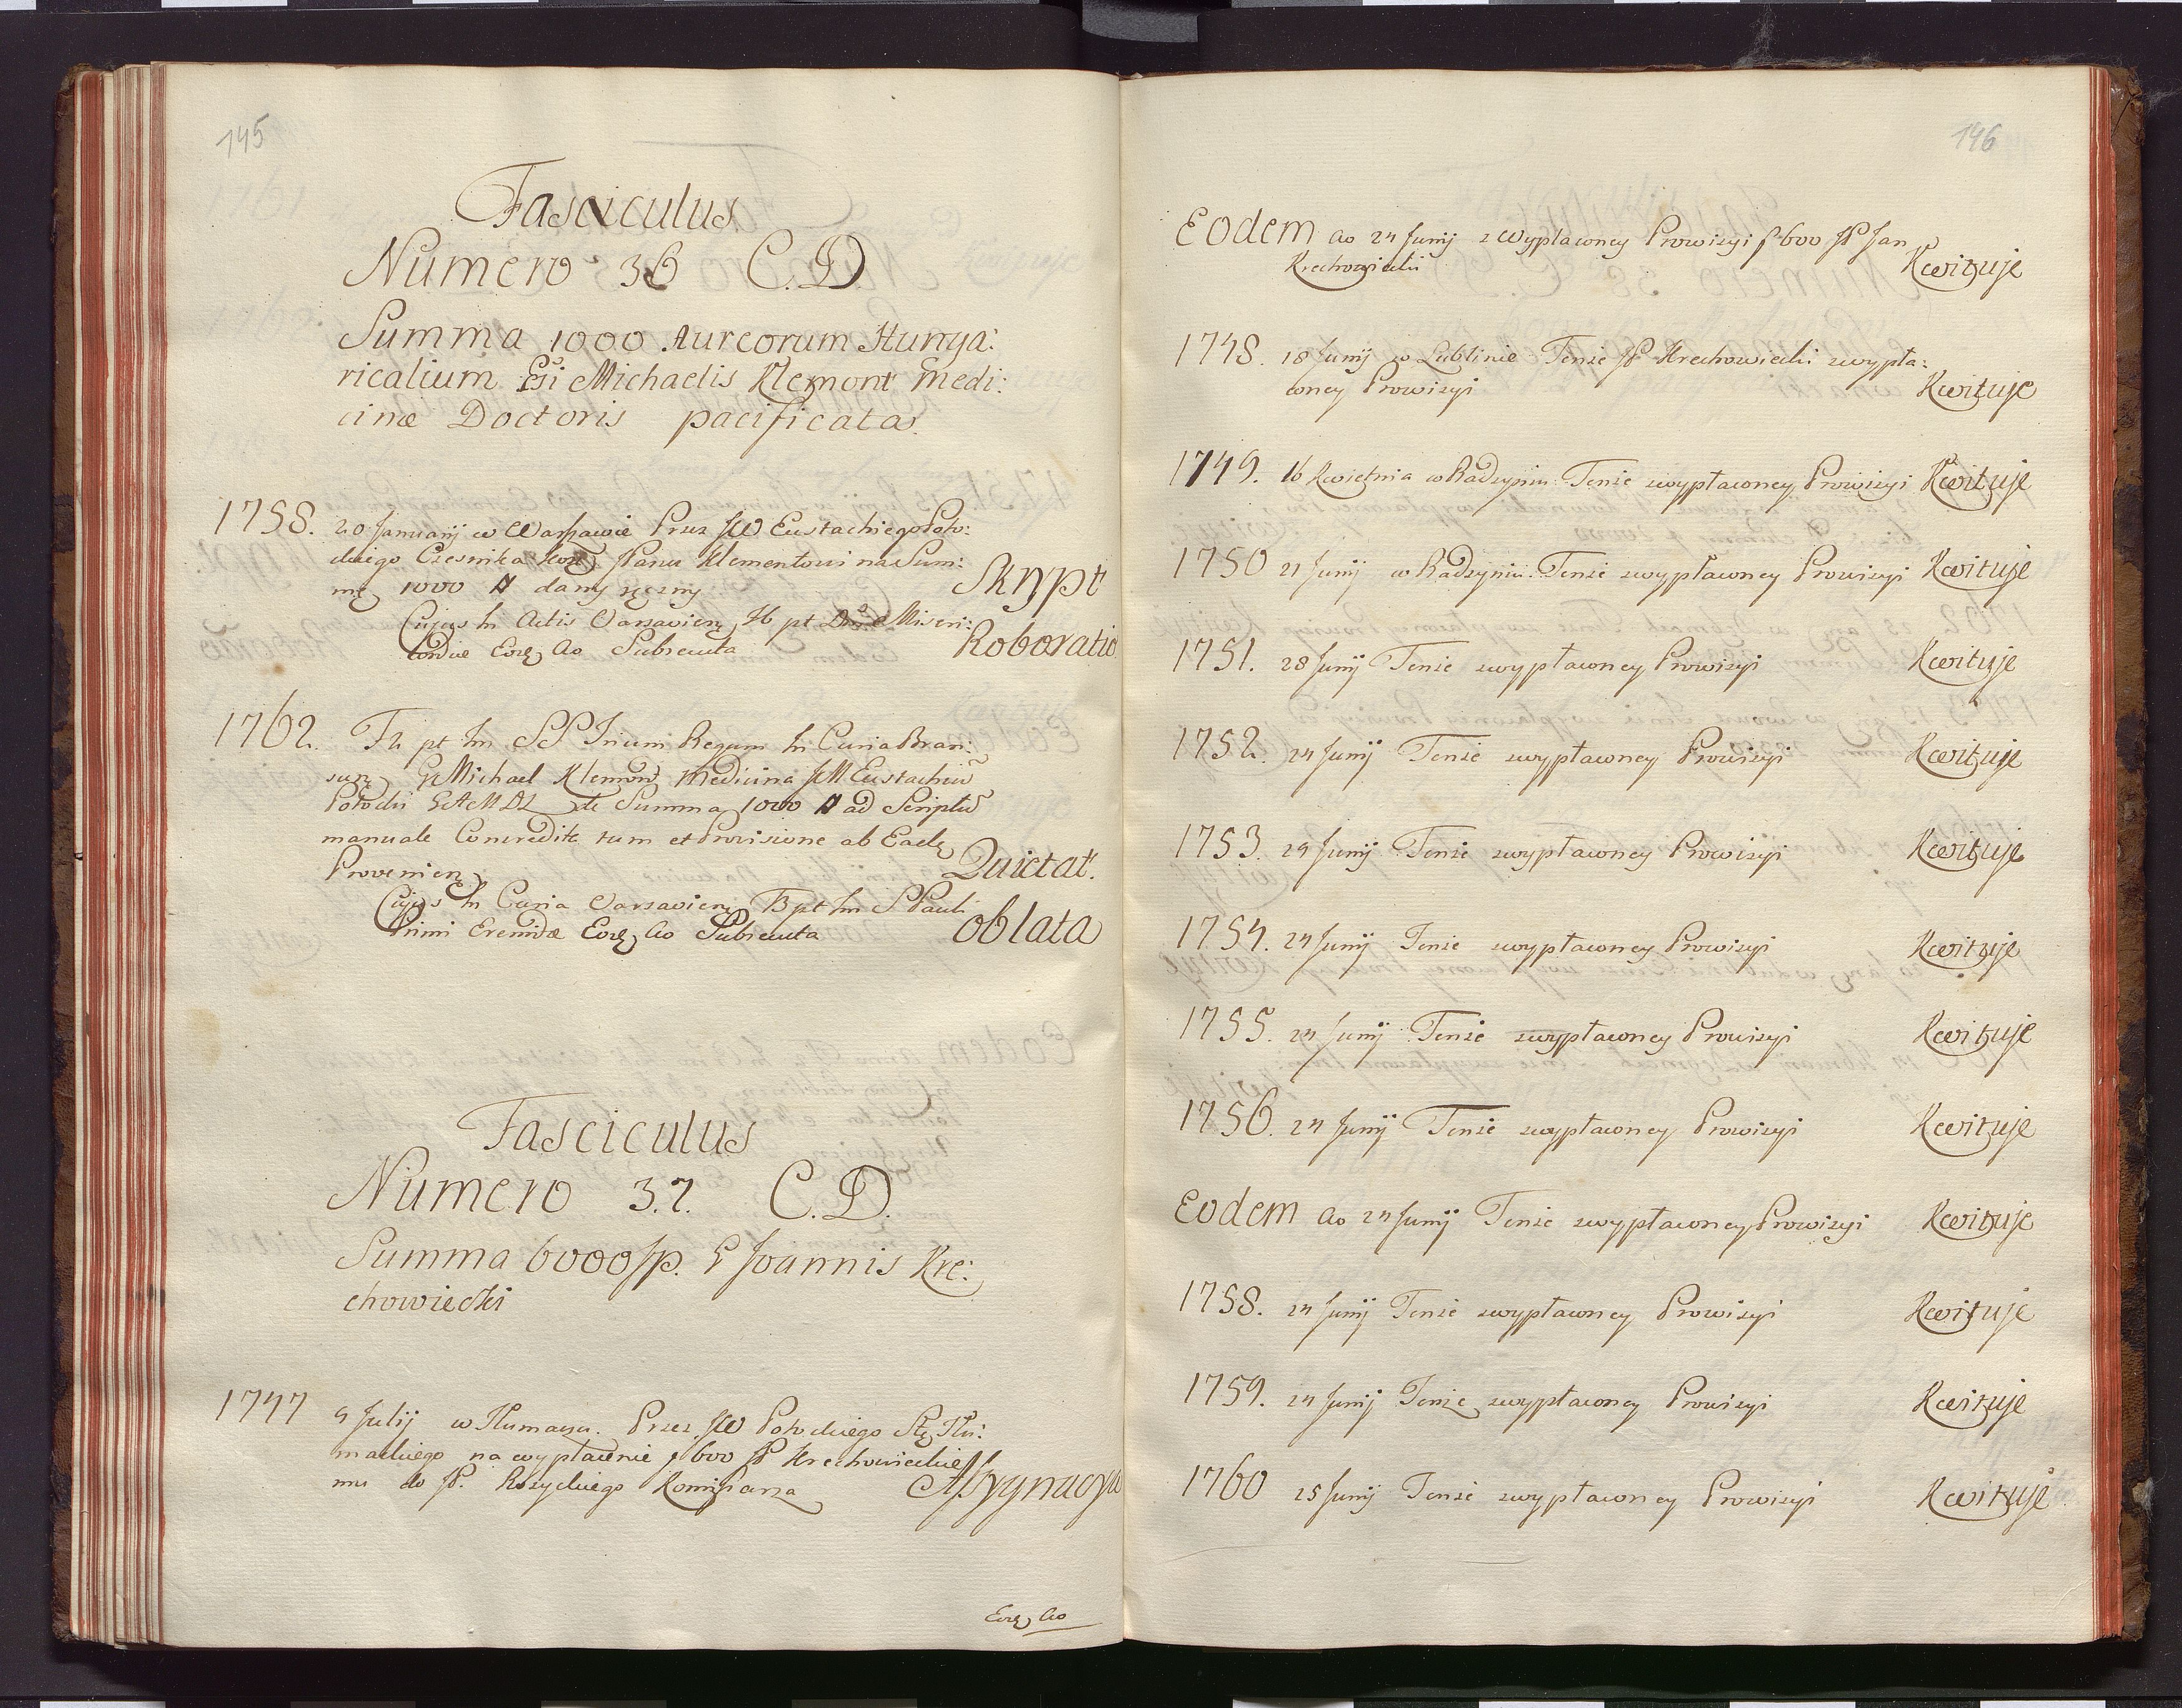 145
Fasciculus
Numero 36 C.D.
Summa 1000 Aureorum Hunga:
ricalium Gsi Michaelis Klemont Medi:
cinæ Doctoris pacificata
1758. 20 Januarij w Warszawie Przez JW Eustachiego Poto:
ckiego Czesnika Kor Panu Klementowi na Sum:
mę 1000 # dany ręczny Skrypt
Cujus in Actis Varsavien Fb pt Dnca Miseri:
cordiæ Eoz Ao Subsecuta Roboratio
1762. Fr pt in SS Trium Regum in Curia Bran:
Michael Klemont Medicina JM Eustachiu
Potocki GAMDL de Summa 1000 # ad Scriptu
manuale Concredita tum et Provisione ab Eade
Provenien Quietat.
Cujus in Curia Varsavien pt in S Pauli
Primi Eremitæ Eoz Ao Subsecuta oblata
Fasciculus
Numero 37. C.D.
Summa 6000 fp. G Joannis Kre:
chowiecki
1747 9 Julij w Tłumaczu. Przez JW Potockiego Stę Tłu:
mackiego na wypłacenie f 600 JP Krechowieckie
mu do JP. Rozyckiego Komissarza Assygnacya
Eoz Ao
146
Eodem ao 24 Junij z Wypłaconey Prowizyi f 600 JP Jan
Krechowiecki Kwituje
1748. 18 Junij w Lublinie Tenże JP Krechowiecki z wypła:
coney Prowizyi Kwituje
1749. 16 Kwietnia w Radzyniu Tenże z wypłaconey Prowizyi Kwituje
1750 21 Junij w Radzyniu Tenże z wypłaconey Prowizyi Kwituje
1751. 28 Junij Tenże z wypłaconey Prowizyi Kwituje
1752. 24 Junij Tenże z wypłaconey Prowizyi Kwituje
1753. 29 Junij Tenże z wypłaconey Prowizyi Kwituje
1754. 24 Junij Tenże z wypłaconey Prowizyi Kwituje
1755. 24 Junij Tenże z wypłaconey Prowizyi Kwituje
1756. 24 Junij Tenże z wypłaconey Prowizyi Kwituje
Eodem ao 24 Junij Tenże z wypłaconey Prowizyi Kwituje
1758. 24 Junij Tenże z wypłaconey Prowizyi Kwituje
1759. 24 Junij Tenże z wypłaconey Prowizyi Kwituje
1760 25 Junij Tenże z wypłaconey Prowizyi Kwituje